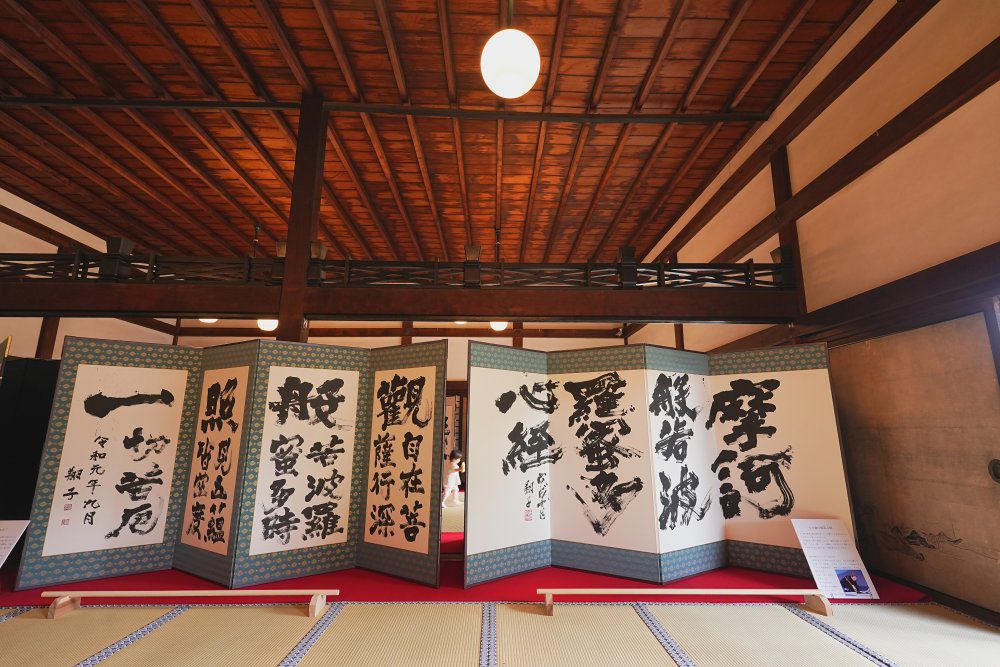 摩訶
般若波
羅蜜多
心経
翔子
観自在菩
薩行深
般若波羅
蜜多時
照見五蘊
皆空度
一切苦厄
令和元年九月
翔子